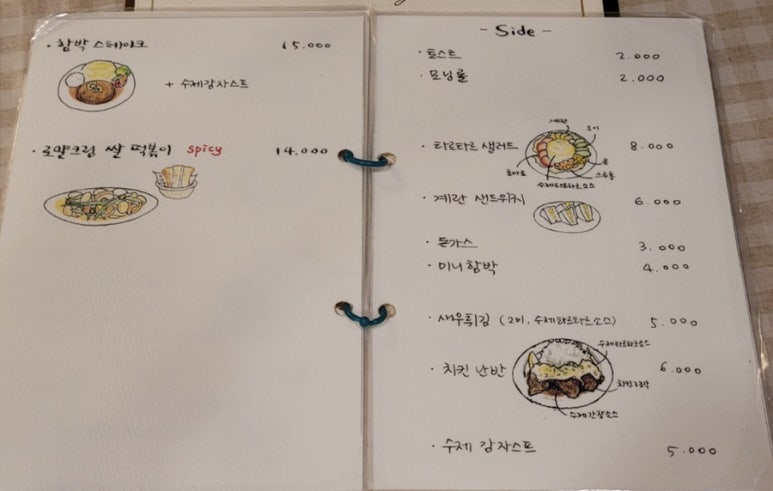 · 함박 스테이크 15.000
+ 수제감자스프
· 로얄크림 쌀 떡볶이 spicy 14.000
- Side -
· 토스트 2.000
· 모닝롤 2.000
계란
오이
· 타르타르 샐러드 8.000
토마토
콘
스위풀
수제타르타르소스
· 계란 샌드위치 6.000
· 돈가스 3.000
· 미니함박 4.000
· 새우튀김 (2미, 수제타르타르소스) 5.000
수제타르타르소스
· 치킨 난반 6.000
수제간장소스
· 수제 감자스프 5.000